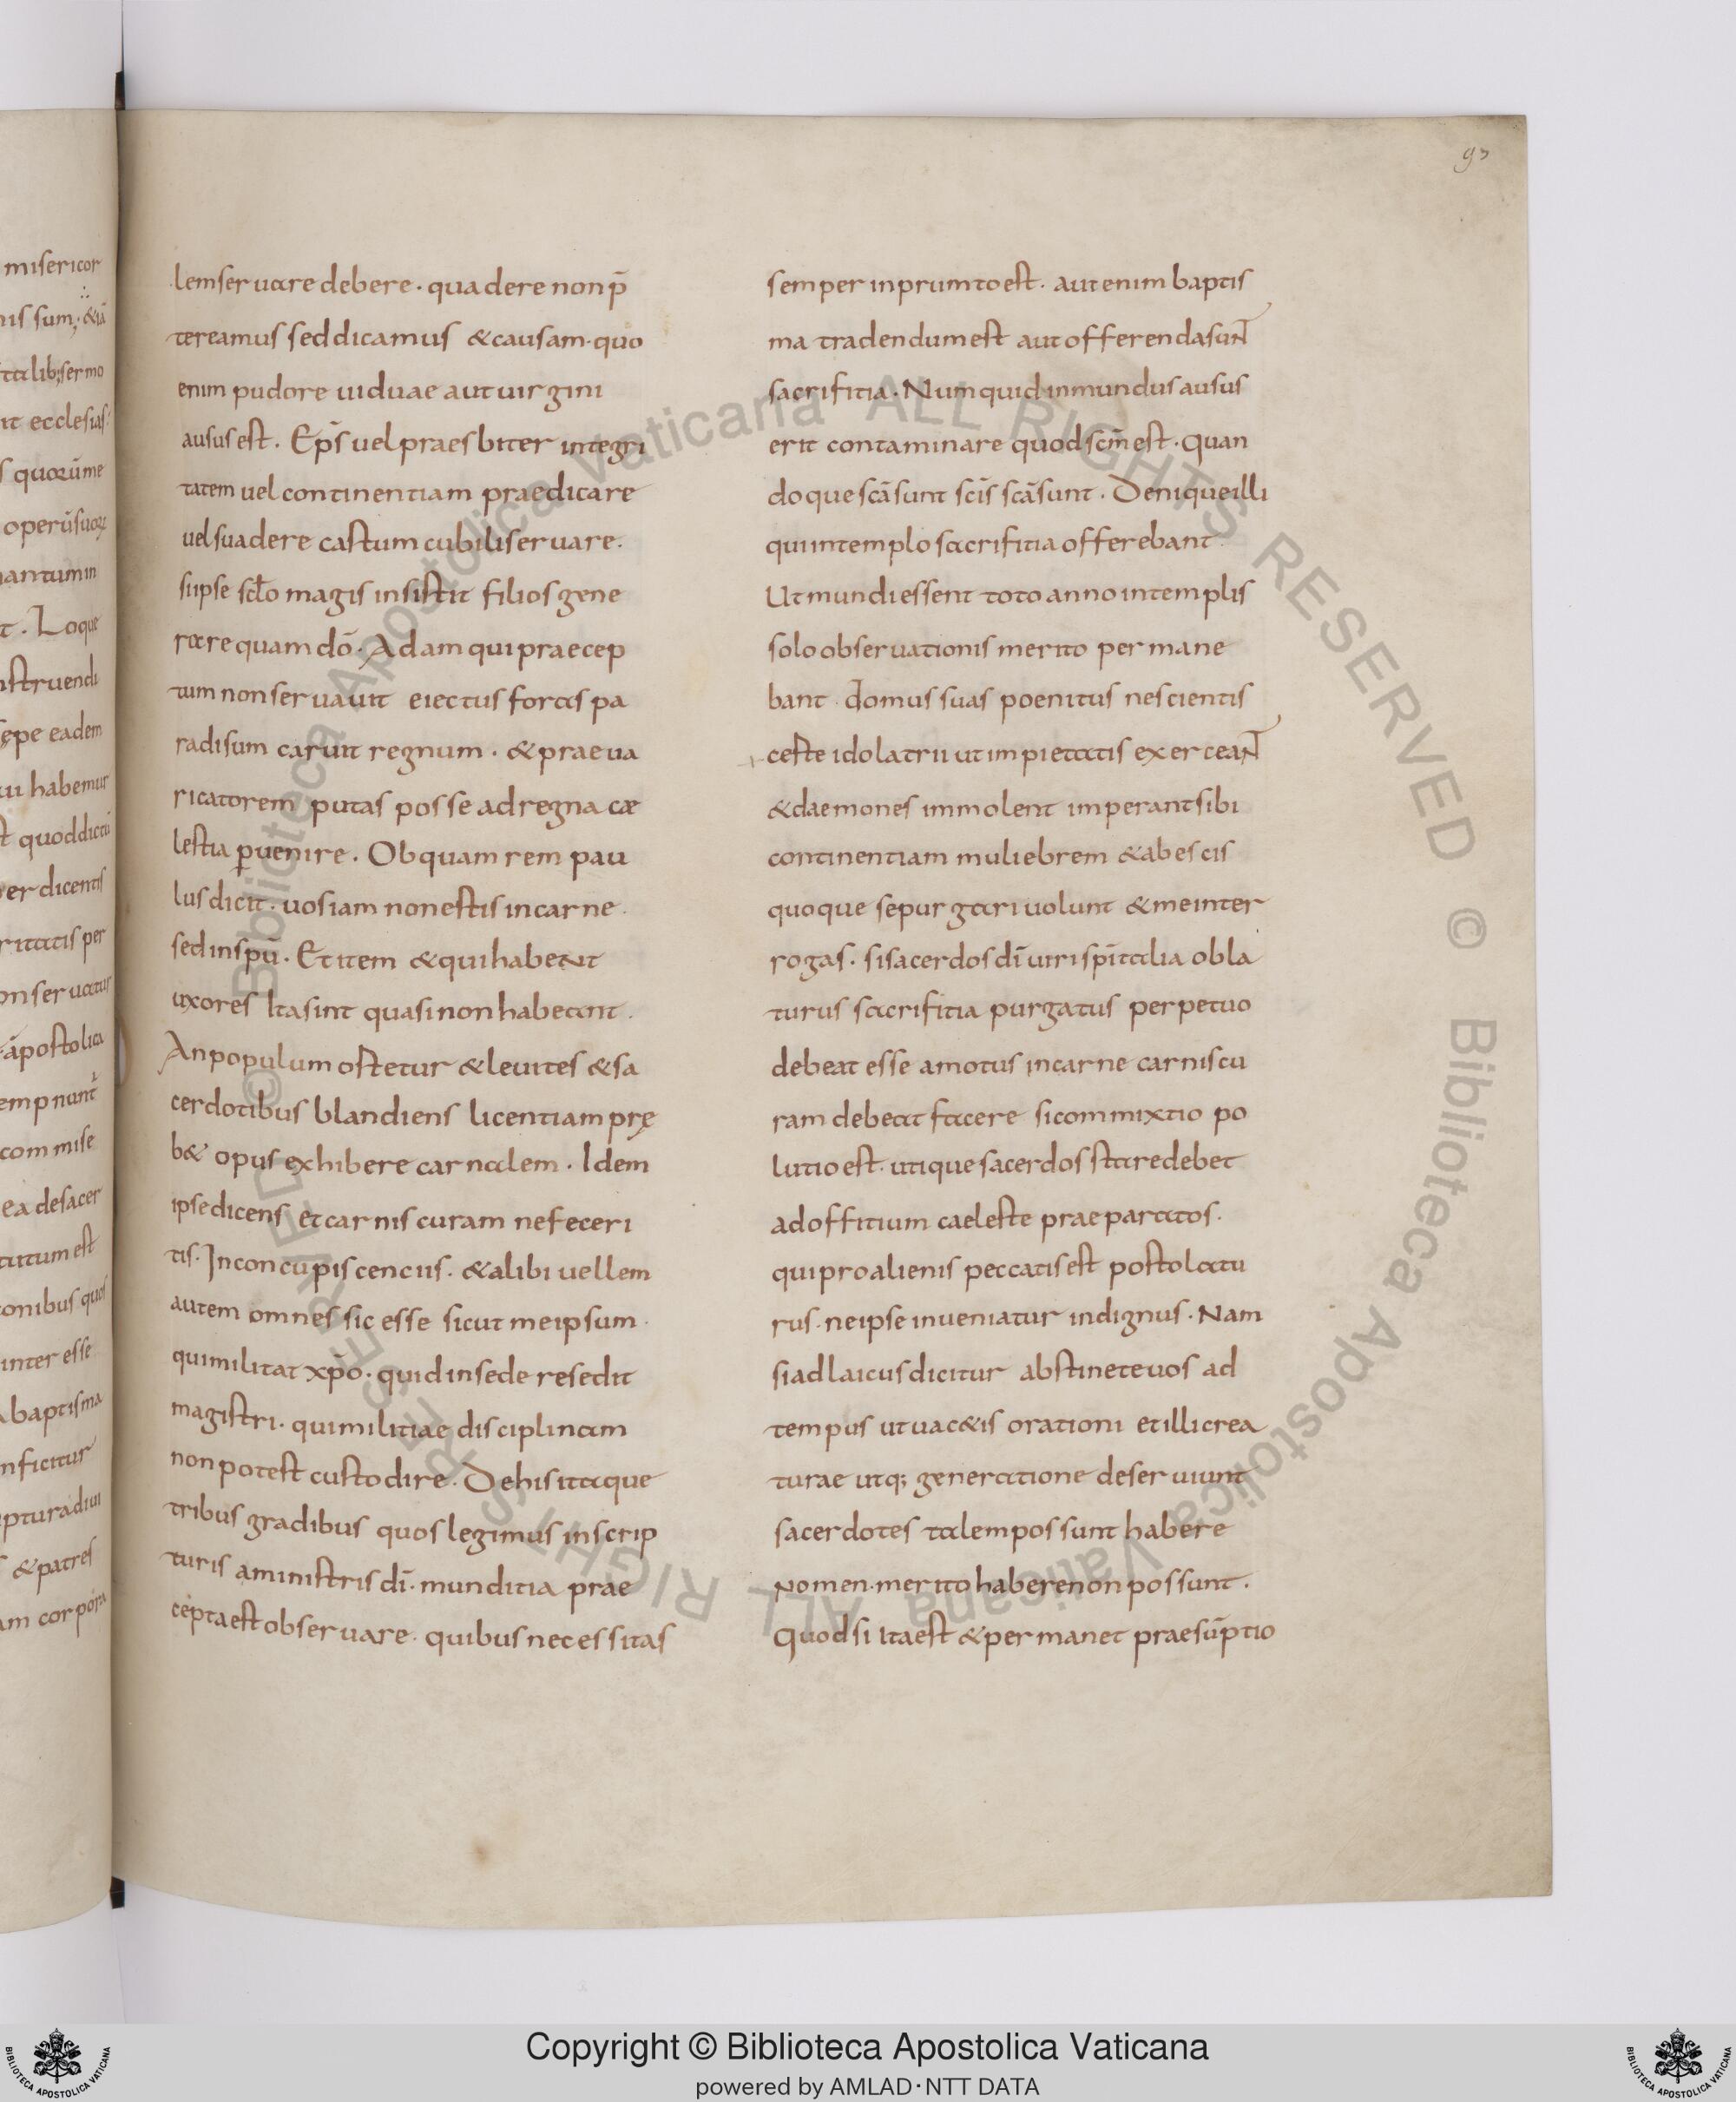 93
misericor
nis sum; &iā
talib; sermo
it ecclesias
s quorūme
operūsuorꝝ
nantumin
t. Loque
nstruendi
sępe eadem
ui habemur
st quoddictū
er dicentis
ritatis per
onseruatur
apostolica
empnunt
commise
ea desacer
titutumest
onibus quos
inter esse
baptisma
nficitur
ripturadiui
& patres
am corpora
lemseruare debere · quadere non p̄
tereamus seddicamus &causam · quo
enim pudore uiduae aut uirgini
aususest. Ep̄s uelpraesbiter integri
tatem uel continentiam praedicare
uelsuadere castum cubiliseruare.
siipse scl̄o magis insistit filios gene
rare quam dō · Adam qui praecep
tum nonseruauit eiectus foras pa
radisum caruit regnum · & praeua
ricatorem putas posse adregna cæ
lestia ꝑuenire. Ob quam rem pau
lus dicit · uos iam nonestis incarne ·
sed inspū. Et item &quihabent
uxores Itasint quasinonhabeant.
An populum ostetur &leuites &sa
cerdotibus blandiens licentiam prę
b& opus exhibere carnalem. Idem
ipsedicens et carnis curam nefeceri
tis. Inconcupiscenciis. &alibi uellem
autem omnes sic esse sicut meipsum ·
quimilitat xp̄o. quid insede resedit
magistri. quimilitiae disciplinam
non potest custodire. De his itaque
tribus gradibus quos legimus inscrip
turis aministris dī · munditia prae
ceptaest obseruare · quibus necessitas
semper inprumtoest. aut enim baptis
ma tradendumest aut offerendasunt
sacrifitia. Numquid inmundus ausus
erit contaminare quod scm̄est. quan
doque scāsunt scīs scāsunt. Denique illi
qui intemplo sacrifitia offerebant.
Ut mundi essent toto anno intemplis
solo obseruationis merito permane
bant · domus suas poenitus nescientis
ceste idolatrii ut impietatis exerceant
&daemones immolent imperantsibi
continentiam muliebrem &abescis
quoque sepurgari uolunt &meinter
rogas. si sacerdos dī uiri spīt̄alia obla
turus sacrifitia purgatus perpetuo
debeat esse amotus incarne carniscu
ram debeat facere si commixtio po
lutio est. utique sacerdos staredebet
adoffitium caeleste praeparatos.
qui proalienis peccatisest postolatu
rus. neipse inueniatur indignus. Nam
siadlaicus dicitur abstineteuos ad
tempus utuac&is orationi et illi crea
turae utq; generatione deseruiunt
sacerdotes talem possunt habere
nomen. merito haberenon possunt.
Quod si Itaest &permanet praesūptio
© Biblioteca Apostolica Vaticana ALL RIGHTS RESERVED © Biblioteca Apostolica Vaticana ALL RIGHTS RESERVED
Copyright © Biblioteca Apostolica Vaticana
powered by AMLAD·NTT DATA
BIBLIOTECA APOSTOLICA VATICANA
BIBLIOTECA APOSTOLICA VATICANA